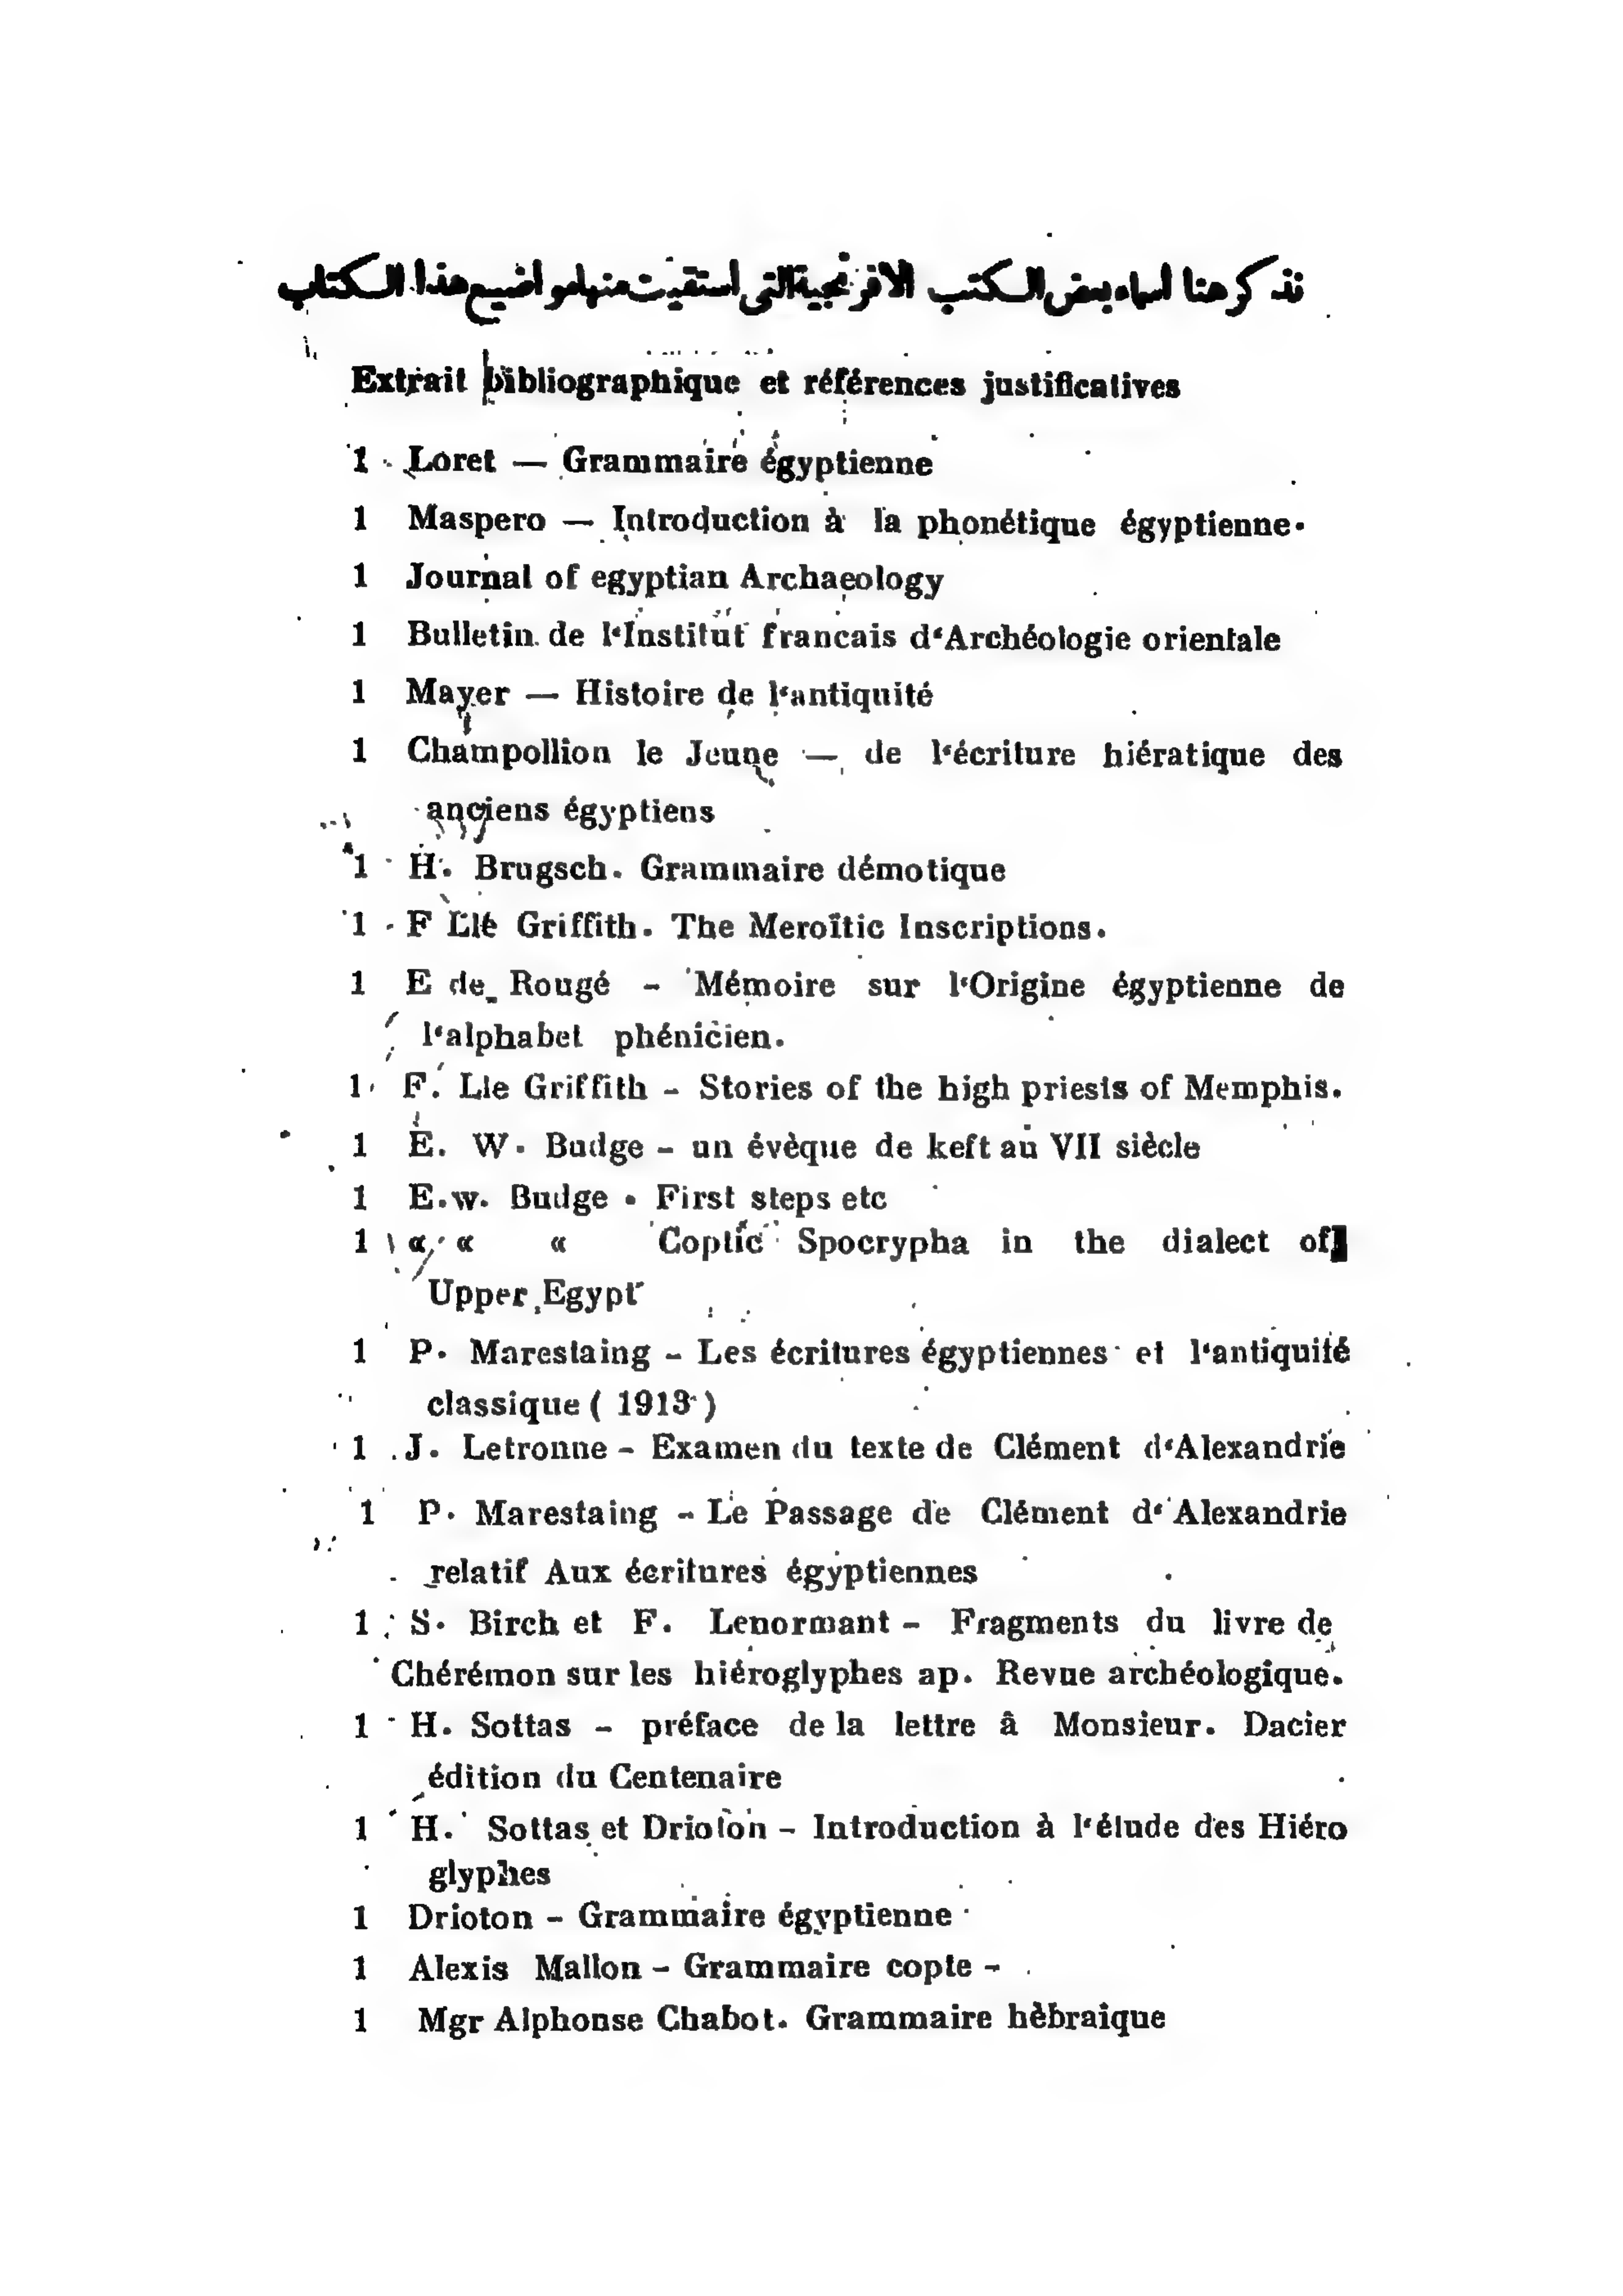 نذكر هنا اسماء بعض الكتب الافرنجية التى استقيت منها مواضيع هذا الكتاب
Extrait bibliographique et références justificatives
1 Loret — Grammaire égyptienne
1 Maspero — Introduction à la phonétique égyptienne.
1 Journal of egyptian Archaeology
1 Bulletin de l‘Institut francais d‘Archéologie orientale
1 Mayer — Histoire de l‘antiquité
1 Champollion le Jeune — de l‘écriture hiératique des
anciens égyptiens
1 H. Brugsch. Grammaire démotique
1 F Llé Griffith. The Meroïtic Inscriptions.
1 E de Rougé - Mémoire sur l‘Origine égyptienne de
l‘alphabet phénicien.
1 F. Lle Griffith - Stories of the high priests of Memphis.
1 E. W. Budge - un évèque de keft au VII siècle
1 E.w. Budge . First steps etc
1 « « « Coptic Spocrypha in the dialect of
Upper Egypt
1 P. Marestaing - Les écritures égyptiennes et l‘antiquité
classique ( 1913 )
1 J. Letronne - Examen du texte de Clément d‘Alexandrie
1 P. Marestaing - Le Passage de Clément d‘Alexandrie
relatif Aux écritures égyptiennes
1 S. Birch et F. Lenormant - Fragments du livre de
Chérémon sur les hiéroglyphes ap. Revue archéologique.
1 H. Sottas - préface de la lettre â Monsieur. Dacier
édition du Centenaire
1 H. Sottas et Drioton - Introduction à l‘élude des Hiéro
glyphes
1 Drioton - Grammaire égyptienne
1 Alexis Mallon - Grammaire copte -
1 Mgr Alphonse Chabot. Grammaire hèbraîque